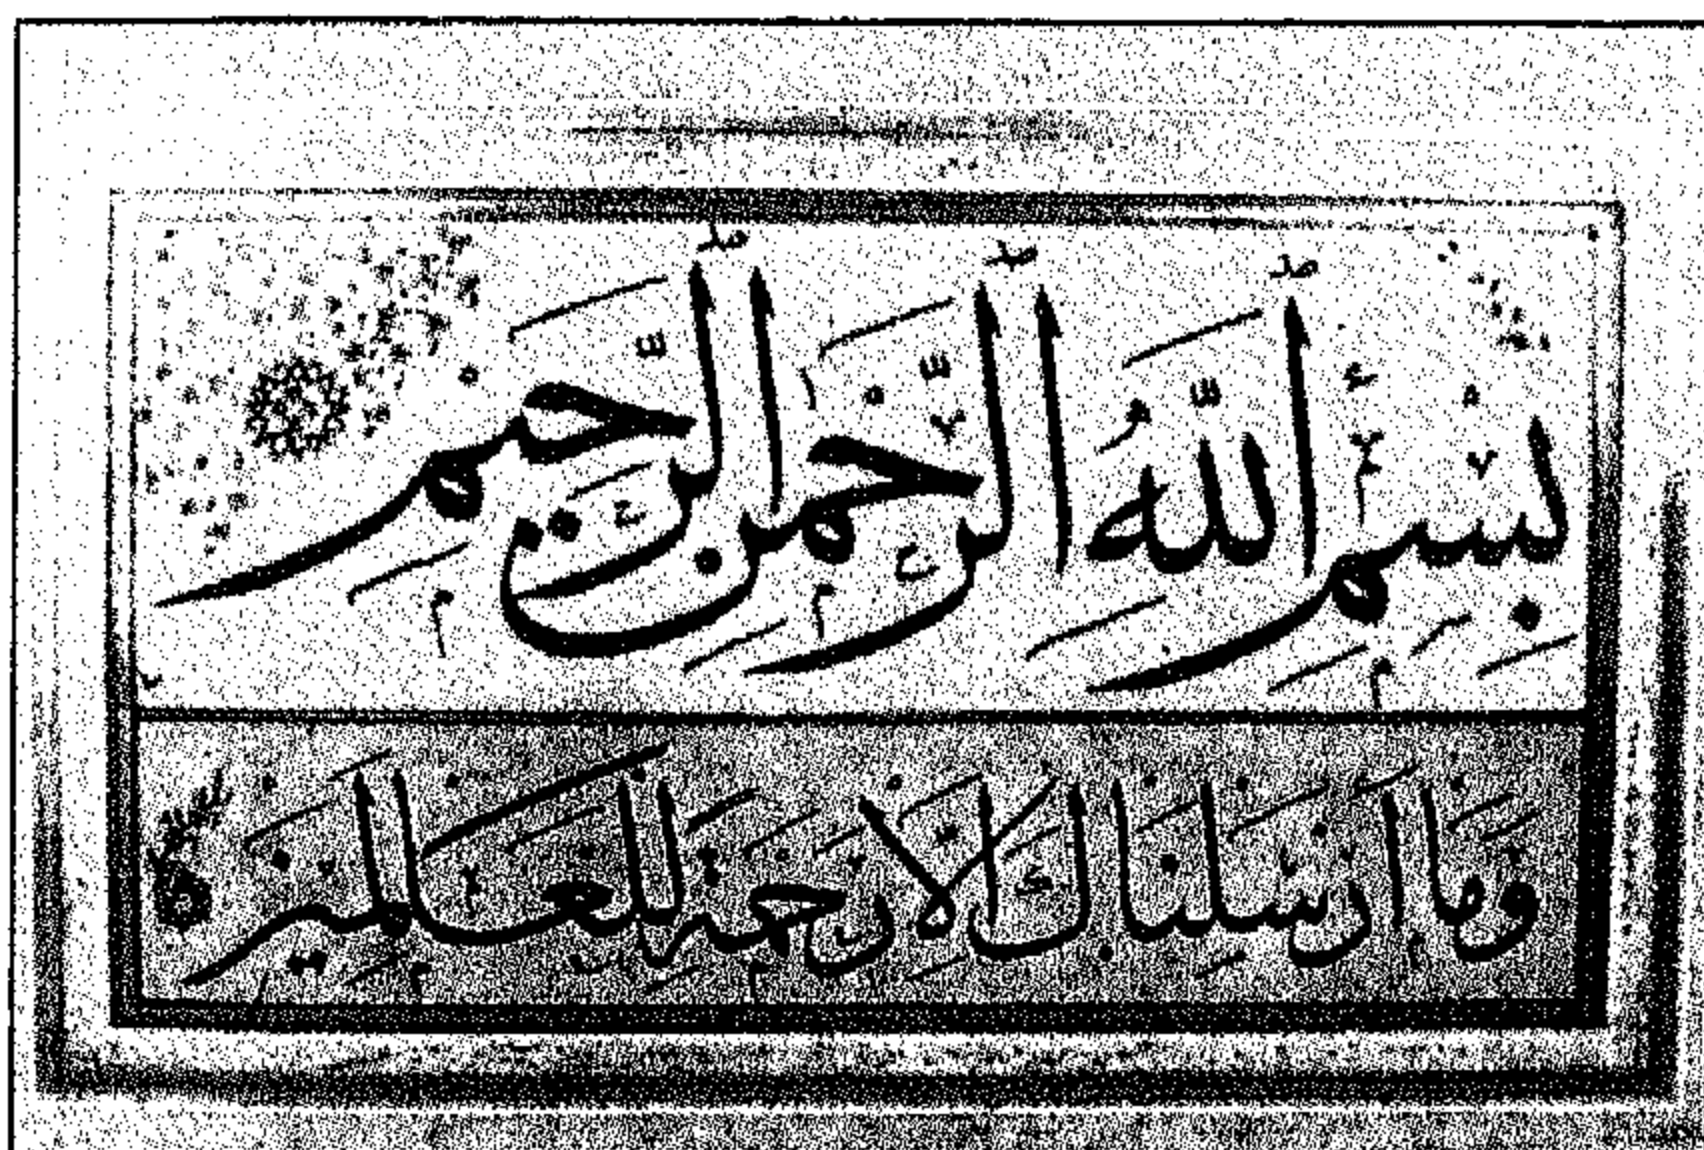 بِسْمِ اللَّهِ الرَّحْمَٰنِ الرَّحِيمِ
وَمَا أَرْسَلْنَاكَ إِلَّا رَحْمَةً لِلْعَالَمِينَ